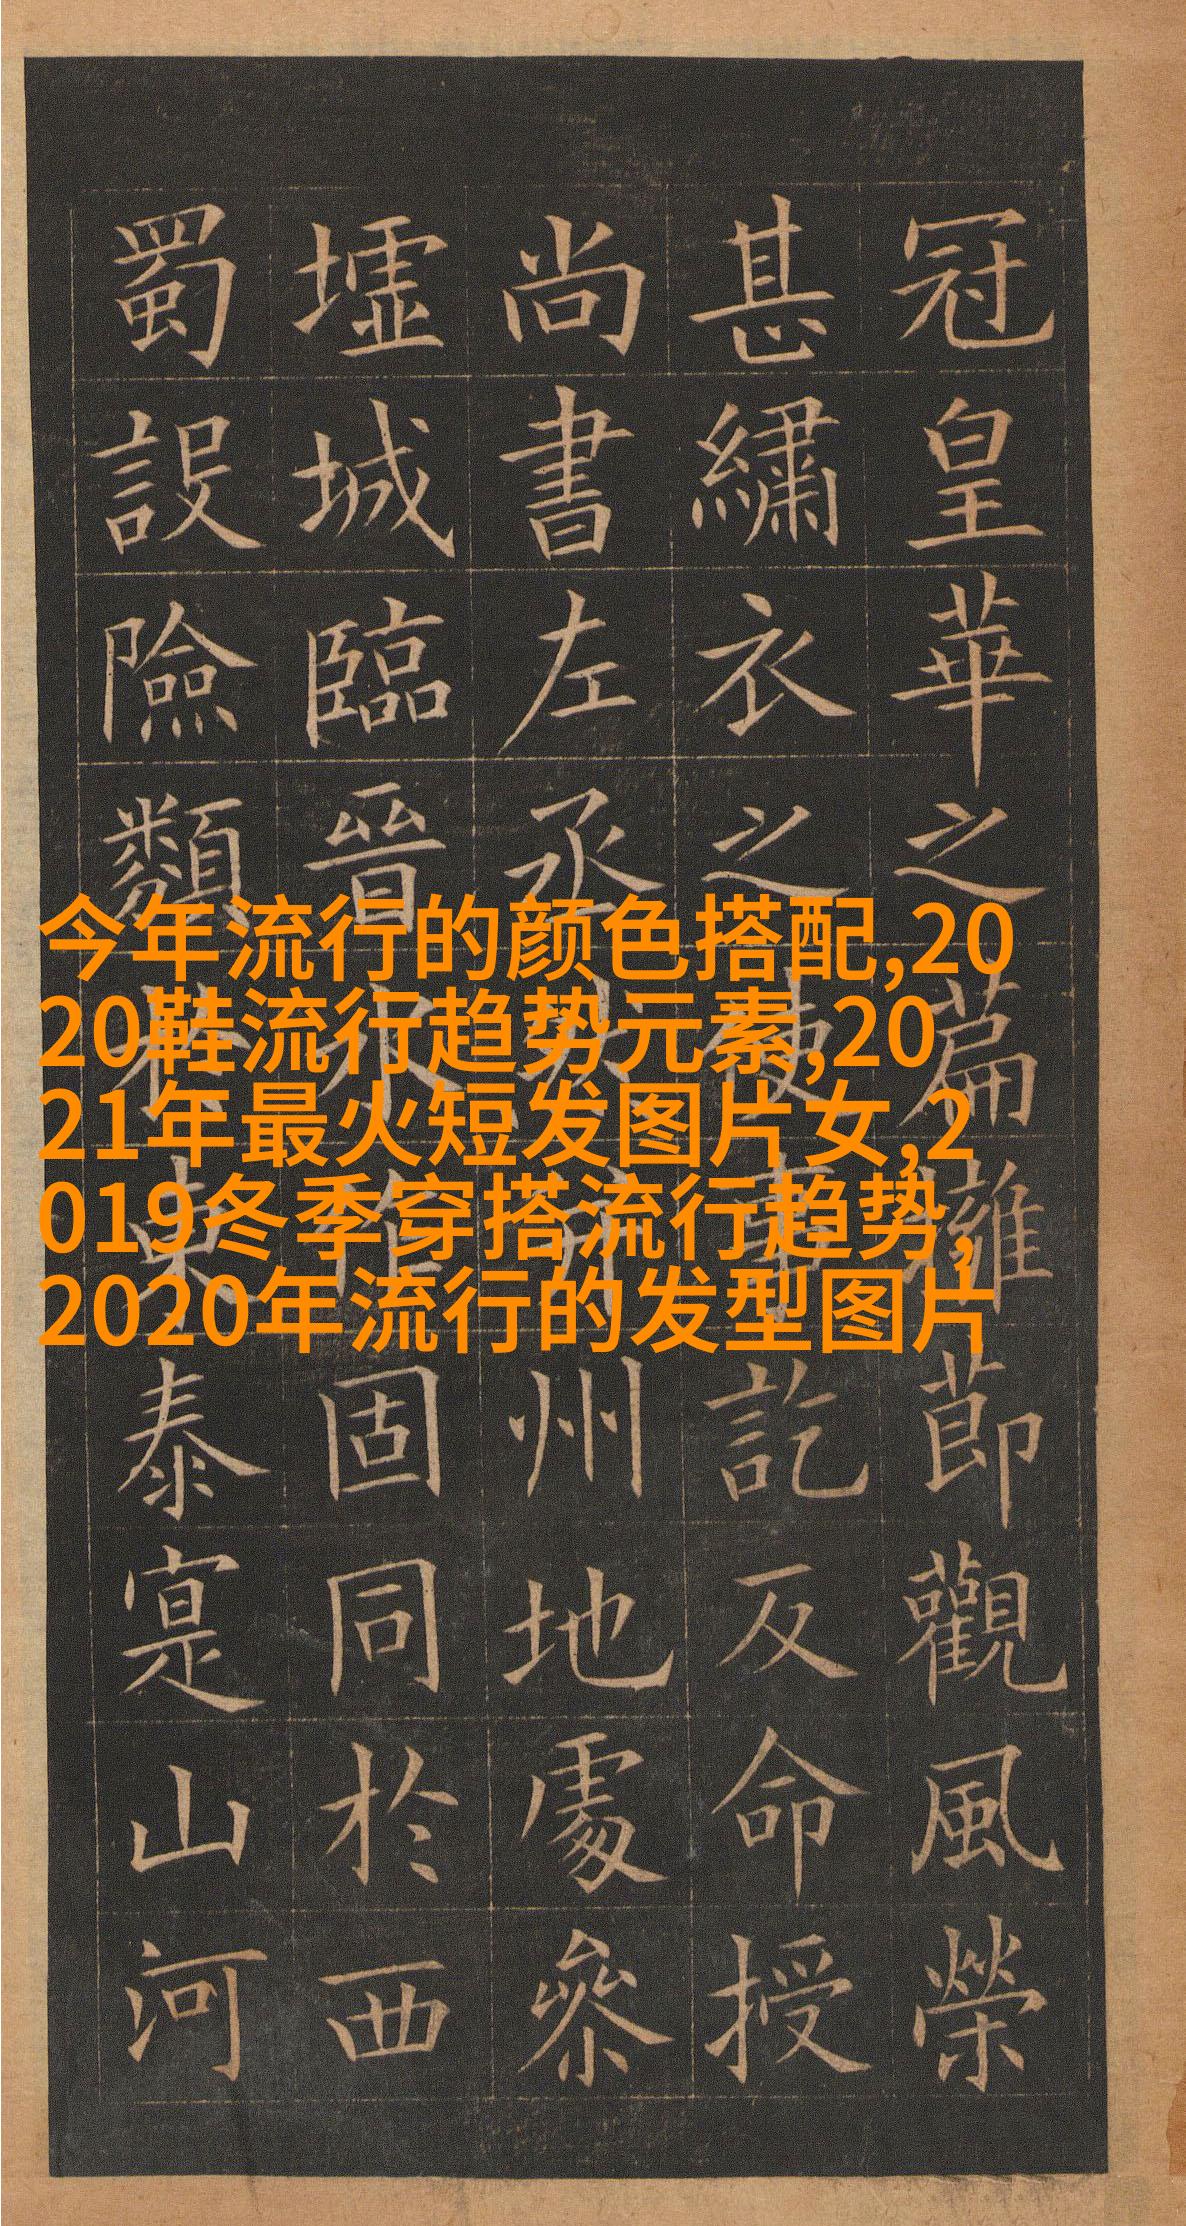 冠皇華之篇擁節觀風榮
甚繡衣之使事訖反命授
尚書左丞州地處參
墟城臨晉水作固同於西
蜀設險類東泰寔山河
今年流行的颜色搭配,20
20鞋流行趋势元素,20
21年最火短发图片女,2
019冬季穿搭流行趋势,
2020年流行的发型图片